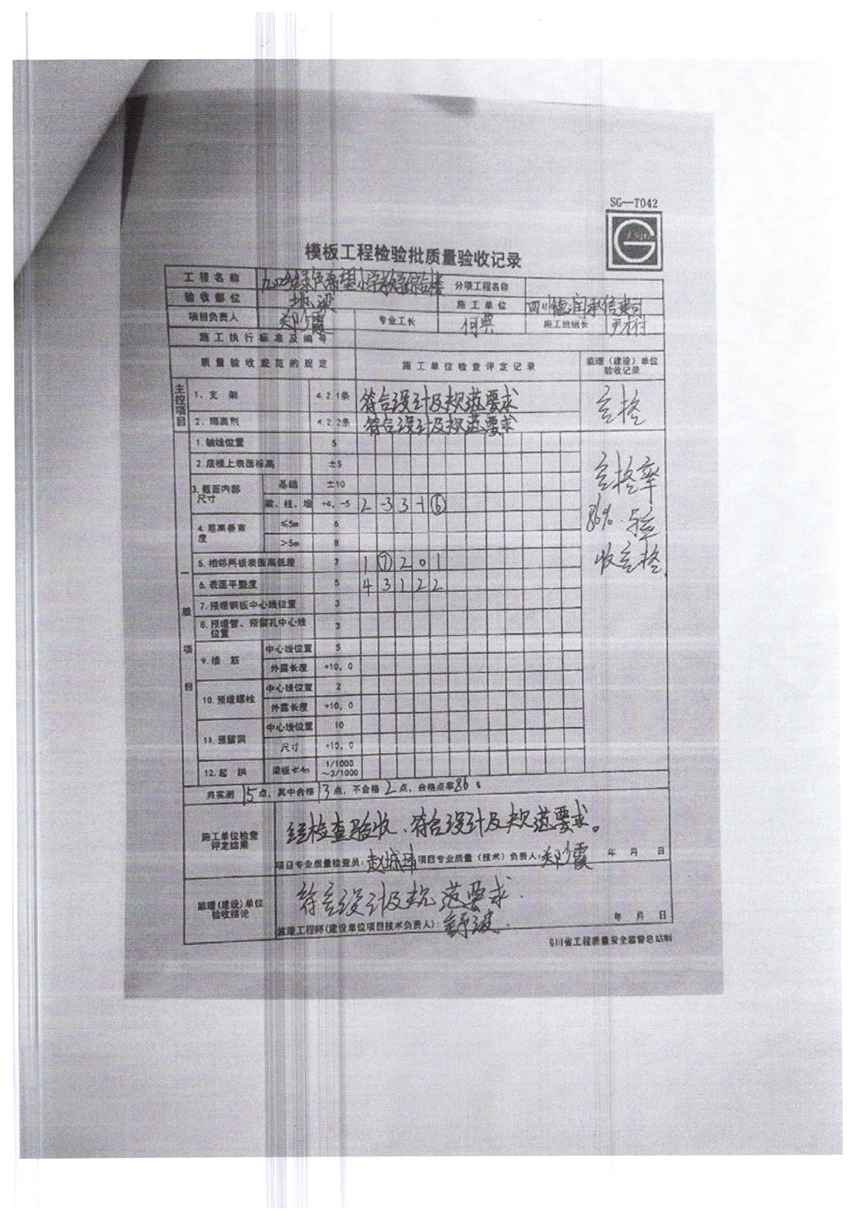 SG—T042
模板工程检验批质量验收记录
工程名称 分项工程名称
验收部位 地梁 施工单位 四川
项目负责人 郑少霞 专业工长 何兴 施工班组长
施工执行标准及编号
质量验收规范的规定 施工单位检查评定记录 监理（建设）单位验收记录
主控项目
1、支架 4.2.1条 符合设计及规范要求 合格
2、隔离剂 4.2.2条 符合设计及规范要求
一般项目
1.轴线位置 5
2.底模上表面标高 ±5
3.截面内部尺寸 基础 ±10
梁、柱、墙 +4，-5 2 -3 3 -1 ⑥
4.层高垂直度 ≤5m 6
>5m 8
5.相邻两板表面高低差 2 1 ⑦ 2 0 1
6.表面平整度 5 4 3 1 2 2
合格率86%.验收合格
7.预埋钢板中心线位置 3
8.预埋管、预留孔中心线位置 3
9.插筋 中心线位置 5
外露长度 +10，0
10.预埋螺栓 中心线位置 2
外露长度 +10，0
11.预留洞 中心线位置 10
尺寸 +10，0
12.起拱 1/1000～3/1000
共实测15点，其中合格13点，不合格2点，合格点率86%
施工单位检查评定结果 经检查验收、符合设计及规范要求。
项目专业质量检查员： 项目专业质量（技术）负责人：郑少霞 年 月 日
监理（建设）单位验收结论 符合设计及规范要求.
监理工程师（建设单位项目技术负责人）： 年 月 日
四川省工程质量安全监督总站制